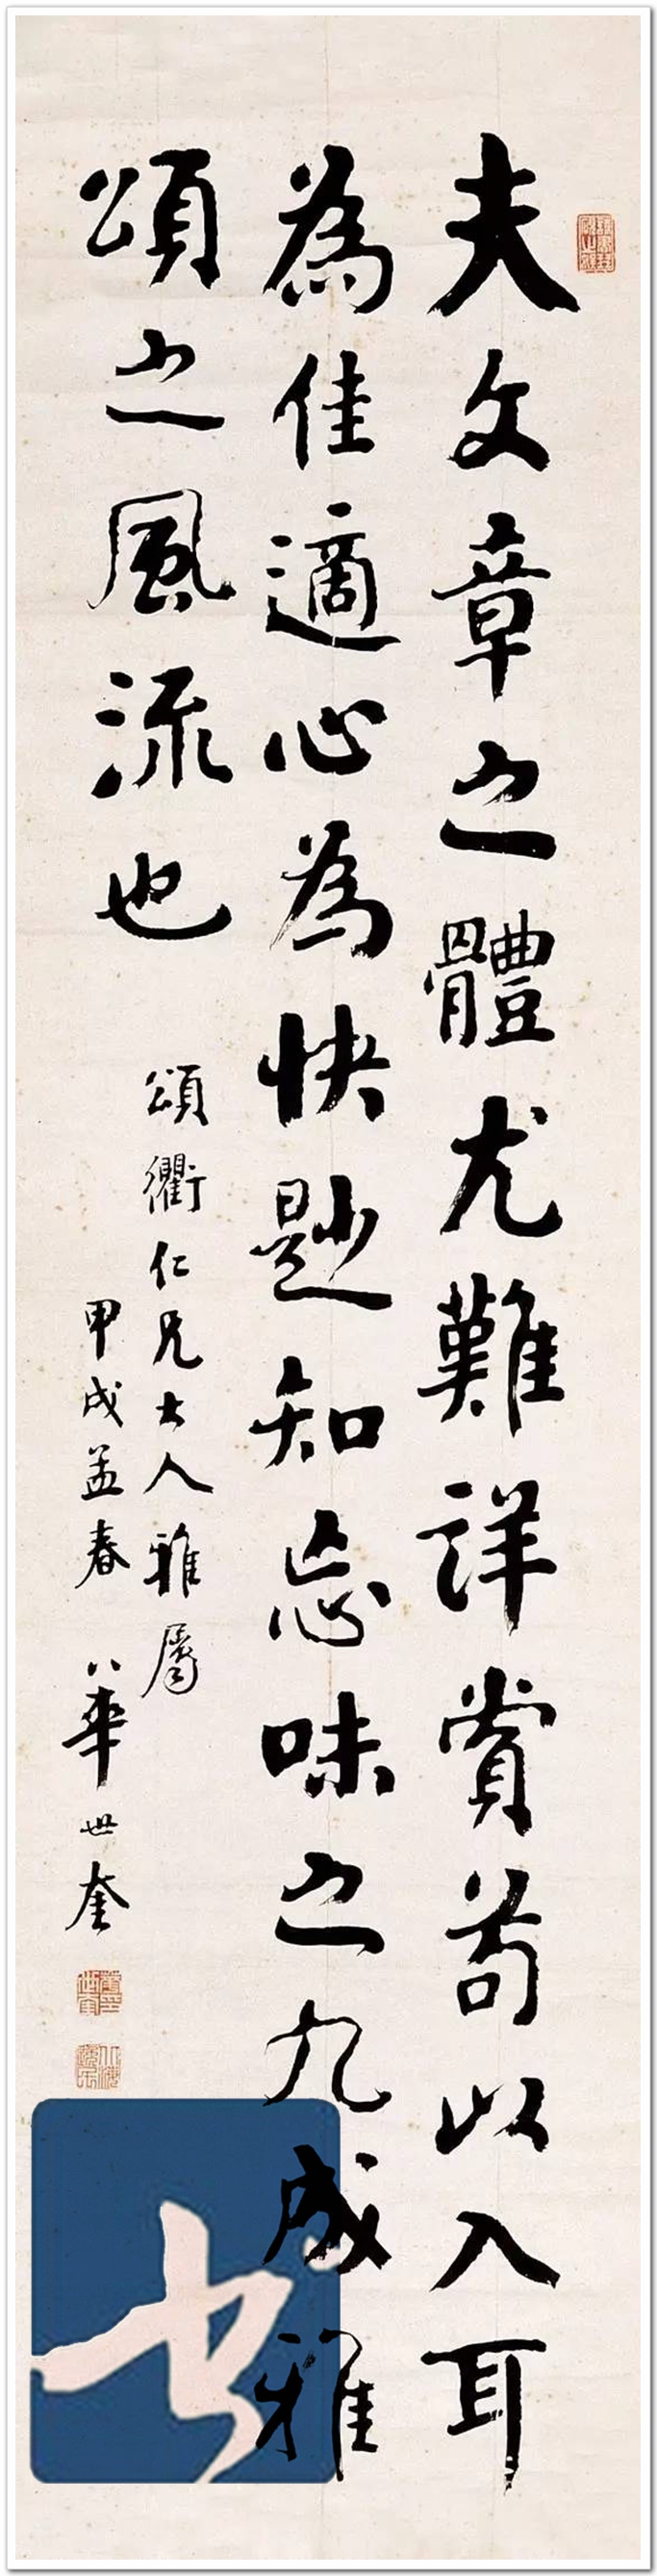 夫文章之體尤難詳賞苟以入耳
為佳適心為快尟知忘味之九成雅
頌之風流也
頌衢仁兄大人雅屬
甲戌孟春 華世奎